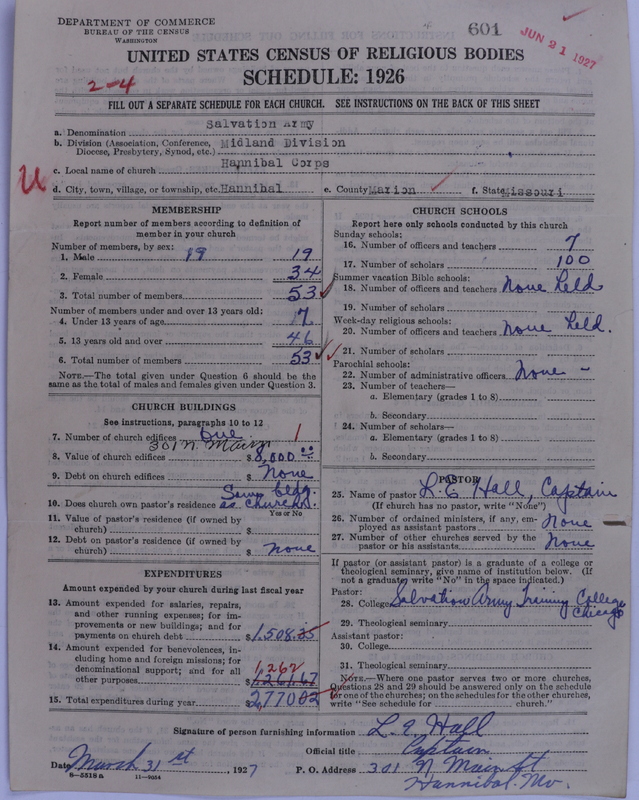 DEPARTMENT OF COMMERCE
BUREAU OF THE CENSUS
WASHINGTON
601
JUN 21 1927
UNITED STATES CENSUS OF RELIGIOUS BODIES
SCHEDULE: 1926
2-4
FILL OUT A SEPARATE SCHEDULE FOR EACH CHURCH. SEE INSTRUCTIONS ON THE BACK OF THIS SHEET
a. Denomination Salvation Army
b. Division (Association, Conference, Diocese, Presbytery, Synod, etc.) Midland Division
c. Local name of church Hannibal Corps
U
d. City, town, village, or township, etc. Hannibal e. County Marion f. State Missouri
MEMBERSHIP
Report number of members according to definition of
member in your church
Number of members, by sex:
1. Male 19 19
2. Female 34
3. Total number of members 53
Number of members under and over 13 years old:
4. Under 13 years of age 7
5. 13 years old and over 46
6. Total number of members 53
NOTE.—The total given under Question 6 should be
same as the total of males and females given under Question 3.
CHURCH BUILDINGS
See instructions, paragraphs 10 to 12
7. Number of church edifices One 1
301 N. Main
8. Value of church edifices $8,000.00
9. Debt on church edifices $ None
Same bldg.
10. Does church own pastor's residence as church.
Yes or No
11. Value of pastor's residence (if owned by
church) $
12. Debt on pastor's residence (if owned by
church) $ None
EXPENDITURES
Amount expended by your church during last fiscal year
13. Amount expended for salaries, repairs,
and other running expenses; for im-
provements or new buildings; and for
payments on church debt $1,508.35
14. Amount expended for benevolences, in-
cluding home and foreign missions; for
denominational support; and for all
1,262
other purposes $1261.67
15. Total expenditures during year $277002
CHURCH SCHOOLS
Report here only schools conducted by this church
Sunday schools:
16. Number of officers and teachers 7
17. Number of scholars 100
Summer vacation Bible schools:
18. Number of officers and teachers None Held
19. Number of scholars
Week-day religious schools:
20. Number of officers and teachers None Held.
21. Number of scholars
Parochial schools:
22. Number of administrative officers None -
23. Number of teachers—
a. Elementary (grades 1 to 8)
b. Secondary
24. Number of scholars—
a. Elementary (grades 1 to 8)
b. Secondary
PASTOR
25. Name of pastor L. E. Hall, Captain
(If church has no pastor, write "None")
26. Number of ordained ministers, if any, em-
ployed as assistant pastors None
27. Number of other churches served by the
pastor or his assistants None
If pastor (or assistant pastor) is a graduate of a college or
theological seminary, give name of institution below. (If
not a graduate write "No" in the space indicated.)
Pastor:
28. College Salvation Army Training College
Chicago
29. Theological seminary
Assistant pastor:
30. College
31. Theological seminary
NOTE.—Where one pastor serves two or more churches,
Questions 28 and 29 should be answered only on the schedule
for one of the churches; on the schedules for the other churches,
write "See schedule for church."
Signature of person furnishing information L. E. Hall
Official title Captain
Date March 31st, 1927 P. O. Address 301 N. Main St
Hannibal. Mo.
8-5518 a 11-9054